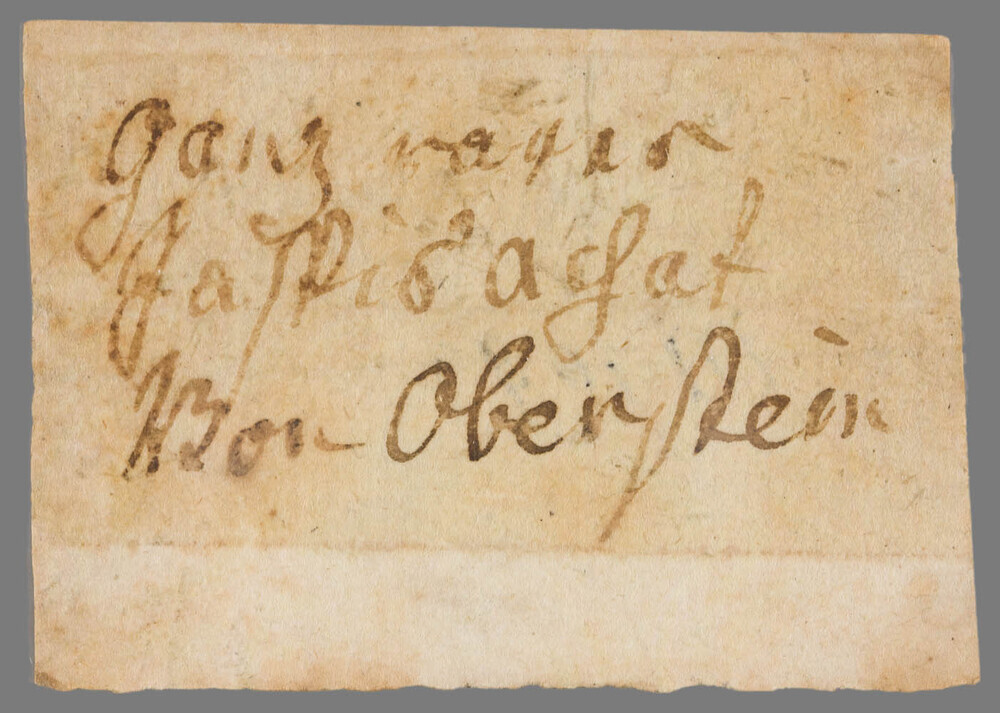 Ganz rarer
Jaspis achat
Von Oberstein